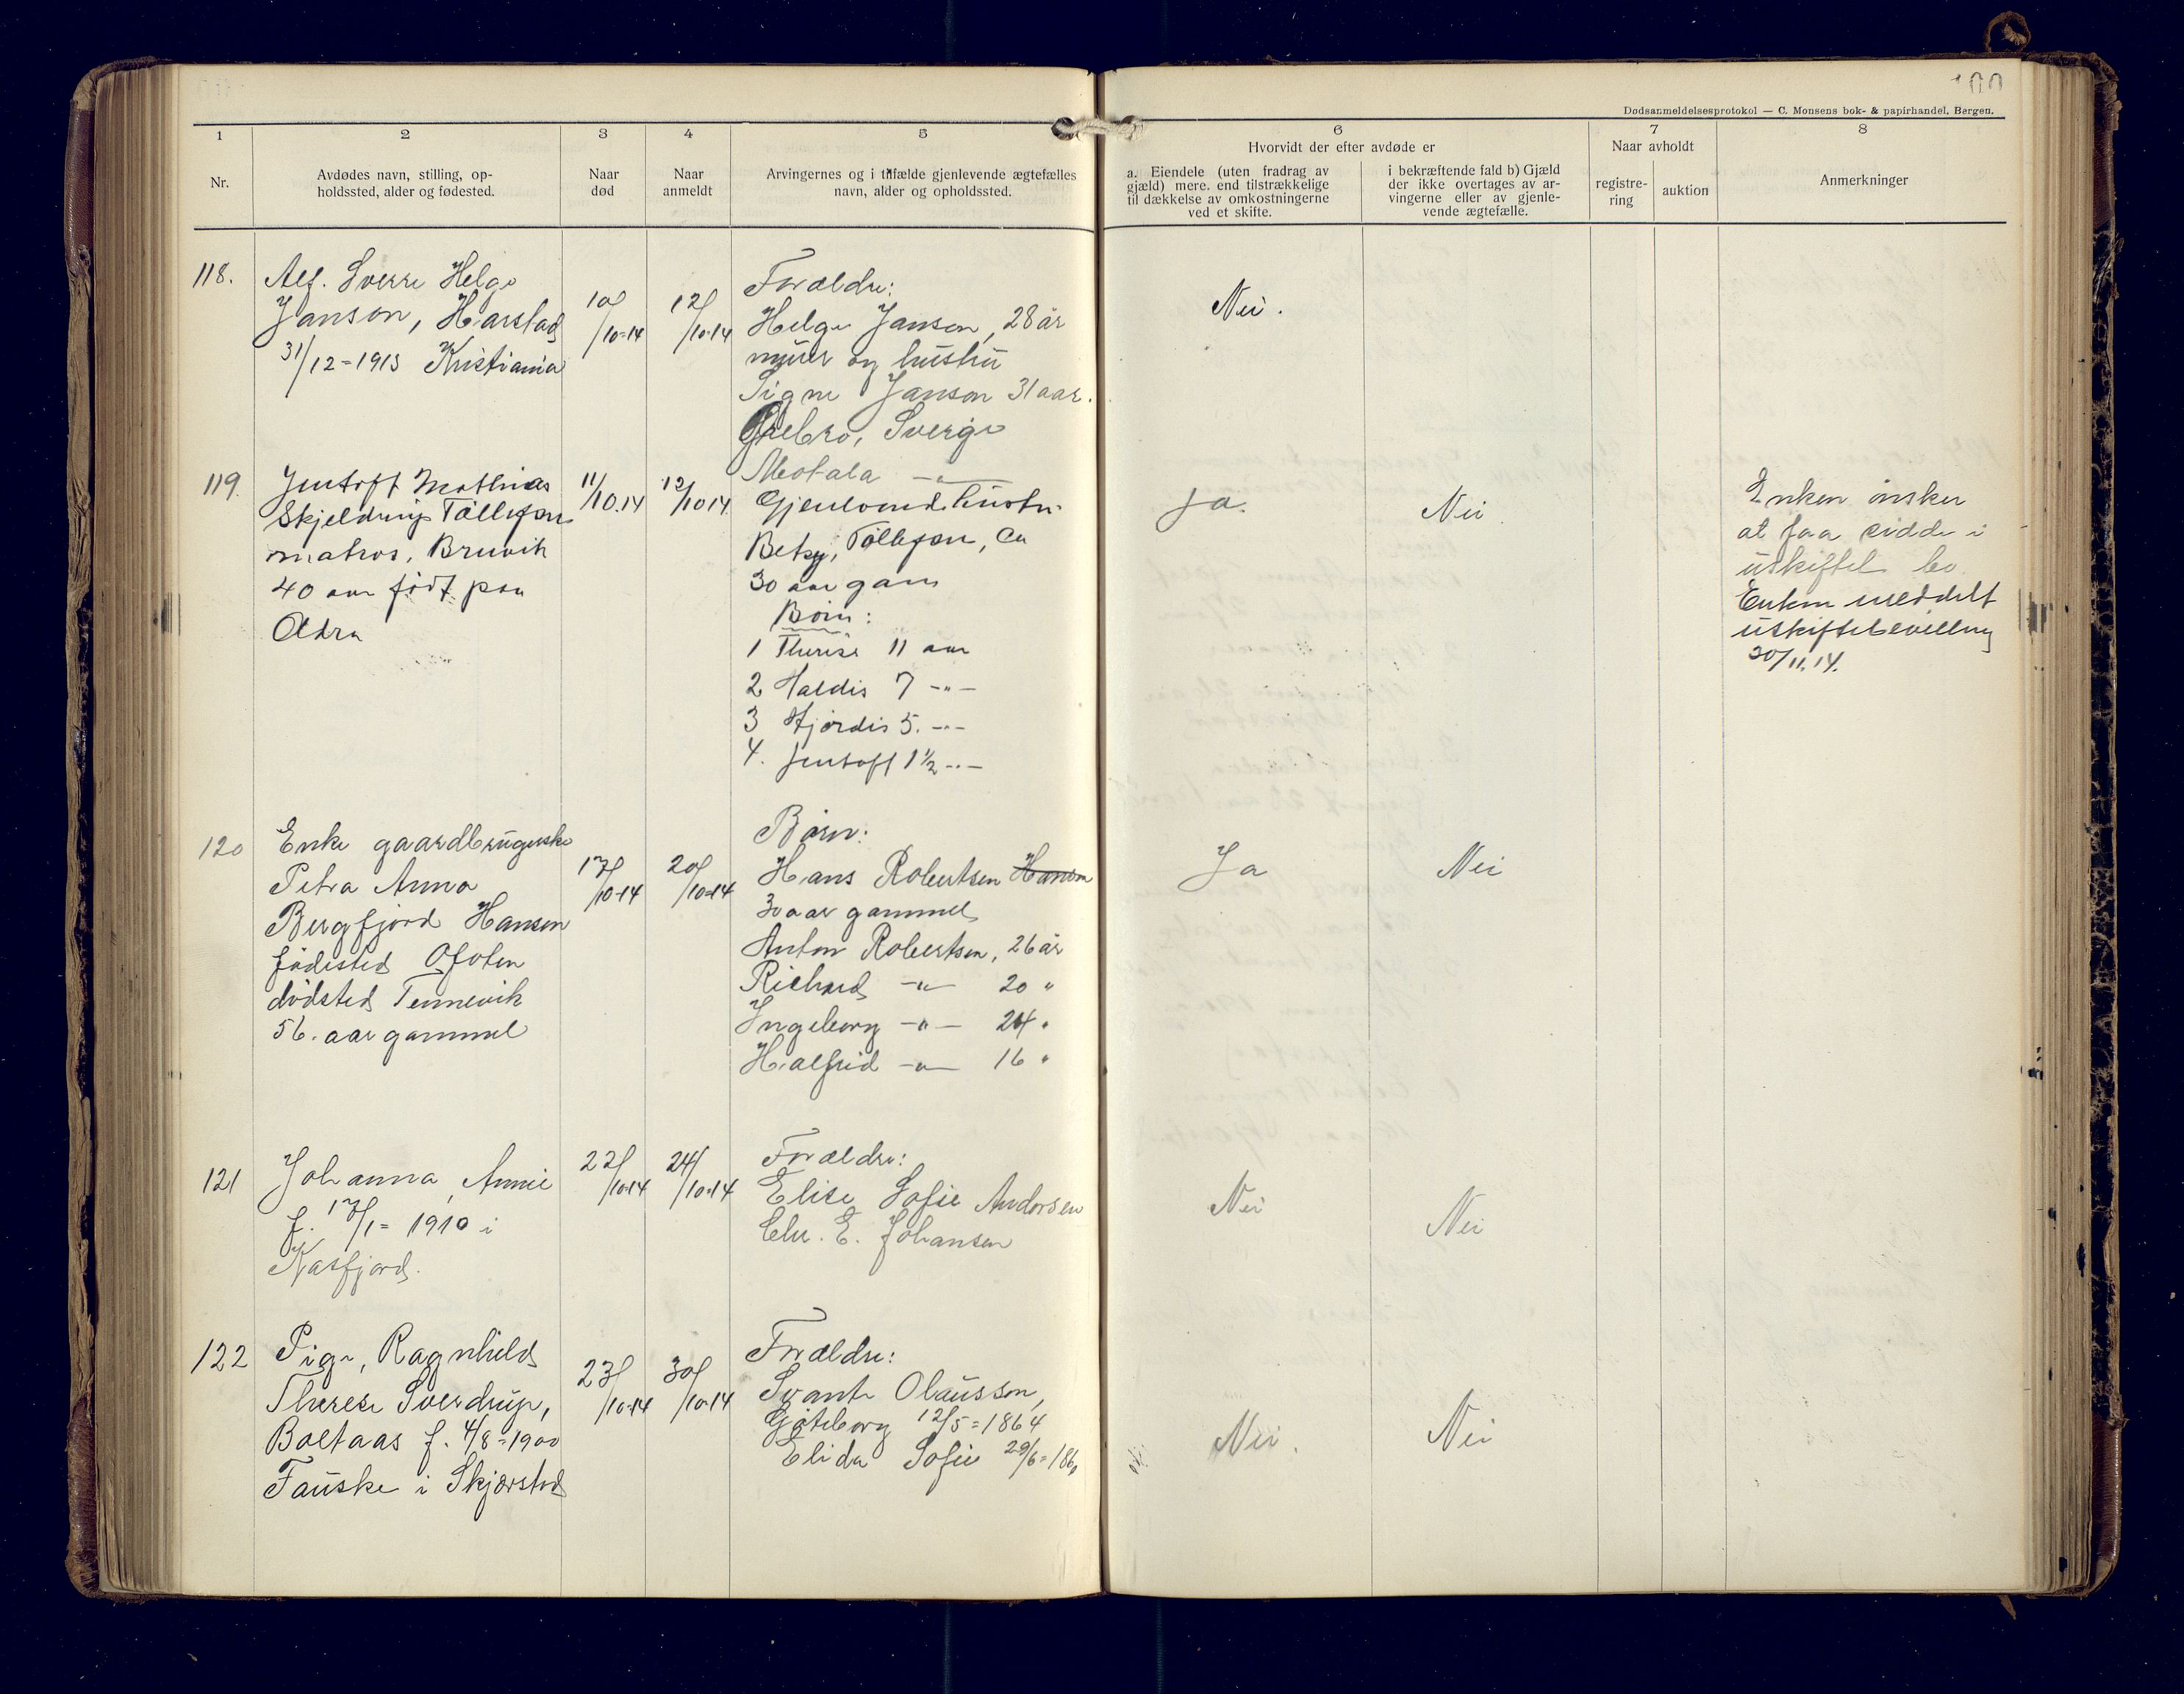 Dødsanmeldelsesprotokol — C. Monsens bok- & papirhandel, Bergen.
1
2
3
4
5
6
7
8
Nr.
Avdødes navn, stilling, op-
holdssted, alder og fødested.
Naar
død
Naar
anmeldt
Arvingernes og i tilfælde gjenlevende ægtefælles
navn, alder og opholdssted.
Hvorvidt der efter avdøde er
a. Eiendele (uten fradrag av
gjæld) mere. end tilstrækkelige
til dækkelse av omkostningerne
ved et skifte.
i bekræftende fald b) Gjæld
der ikke overtages av ar-
vingerne eller av gjenle-
vende ægtefælle.
Naar avholdt
registre-
ring
auktion
Anmerkninger
118.
Alf. Sverre Helge
Janson, Harstad
31/12-1913 Kristiania
10/10-14
12/10-14
Forældre:
Helge Janson, 28 år
murer og hustru
Signe Janson 31 aar.
Ørebro, Sverige
Motala —"—
Nei.
119.
Jentoft Mathias
Skjeldrup Tollefsen
matros, Bruvik
40 aar født paa
Andra
11/10.14
12/10 14
Gjenlevend. hustru
Betsy, Tollefsen, ca
30 aar gam
Børn:
1 Therese 11 aar
2 Haldis 7 -"-
3 Hjørdis 5. -"-
4. Jentoft 1½ -"-
Ja.
Nei
Enken ønsker
at faa sidde i
uskiftet bo
Enken meddelt
uskiftebevilling
30/11.14.
120
Enke gaardbrugerske
Petra Anna
Bergfjord Hansen
fødested Ofoten
dødsted Tennevik
56. aar gammel
17/10-14
20/10-14
Børn:
Hans Robertsen Hansen
30 aar gammel
Anton Robertsen, 26 år
Richard —"— 20 "
Ingeborg —"— 24 "
Halfrid —"— 16 "
Ja
Nei
121
Johanna Annie
f. 17/1-1910 i
Kasfjord.
22/10-14
24/10-14
Forældre:
Elise Sofie Andorsen
Chr. E. Johansen
Nei
Nei
122
Pige, Ragnhild
Therese Sverdrup,
Boltaas f. 4/8-1900
Fauske i Skjerstad
23/10-14
30/10-14
Forældre:
Svante Olausson,
Gøteborg 12/5-1864
Elida Sofie 29/6-186
Nei.
Nei